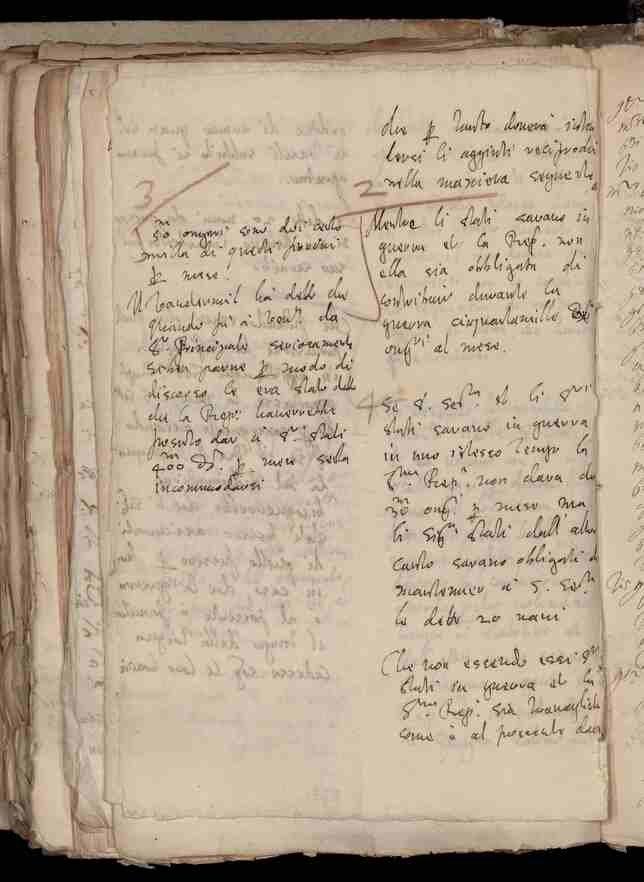 3
50 ongari sono dui cento
milla di questi fiorini
p mese.
Il Vandermil ha detto che
quando fu à Ven.ª da
S.r Principale seriosamente
p modo di
discorso le era stato detto
che la Rep.ª haverebbe
potuto dar à S.ri Stati
400 p mese senza
incommodarsi
che p tanto doverà
li aggionti reciprochi
nella maniera seguente
2
Mentre li stati sarano in
guerra et la Rep. non
ella sia obbligata di
contribuir durante la
guerra cinquantamille
ong.ri al mese.
4
Se S. Ser.tà et li S.ri
stati sarano in guerra
in uno istesso tempo la
S.ma Rep.ª non darà
50 ong.ri p mese ma
li Sig.ri Stati dall' altro
canto sarano obligati di
mantenner à S. Ser.tà
le dette 20 navi
Che non essendo essi S.ri
Stati in guerra et la
S.ma Rep.ª sia travagliata
come è al presente